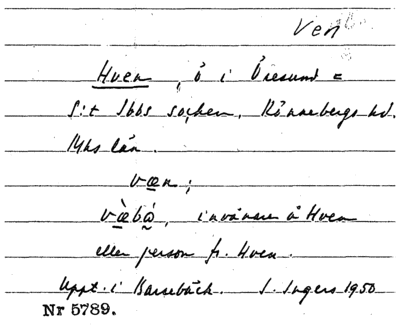 Ven
Hven, ö i Öresund =
S:t Ibbs socken, Rönnebergs hd.
Mhs län.
væn;
væ̀bá, invånare å Hven
eller person fr. Hven.
Uppt. i Barsebäck. I. Ingers 1950
Nr 5789.